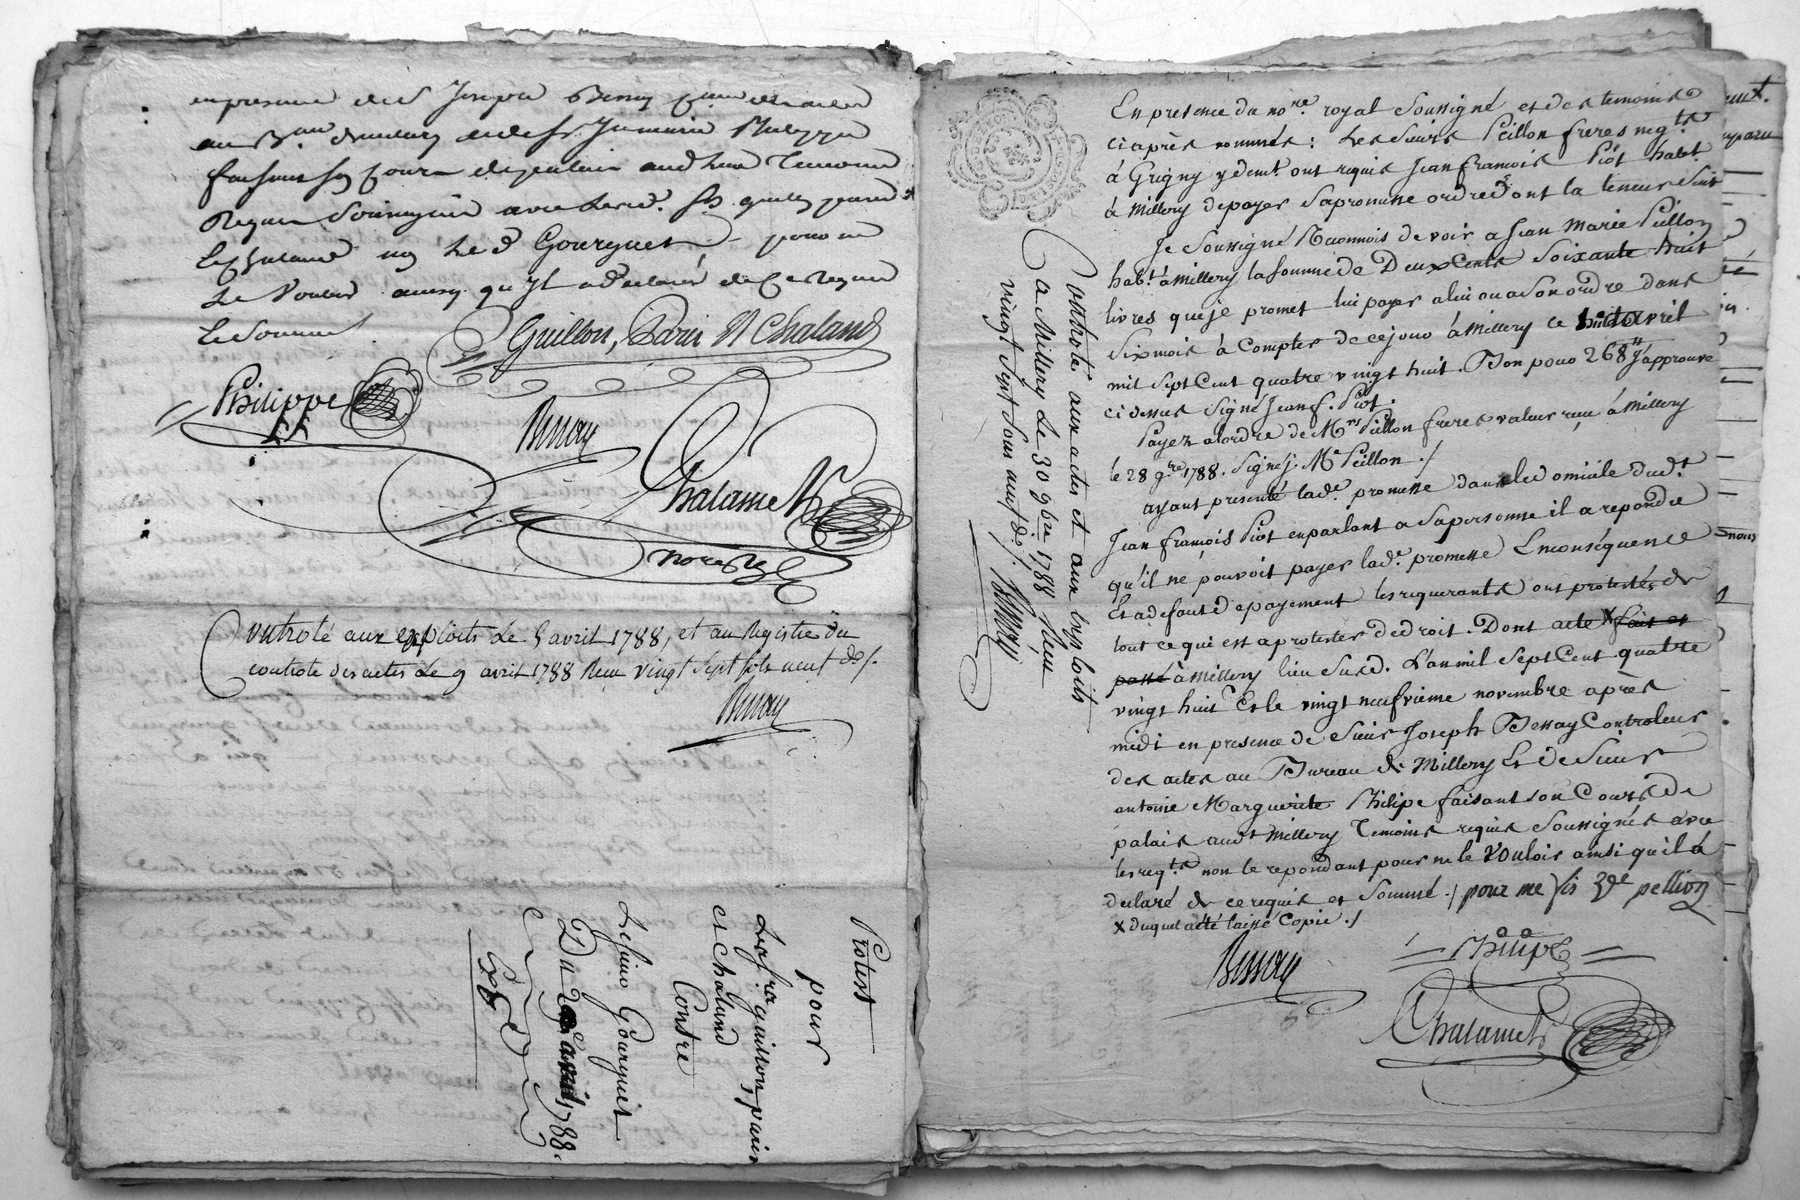 en presence de s.r Joseph
au
faisant son cours de palais aud. lieu Temoins
Requis Soussignés avec lesd. srs guillon parin
Et Chaland non Led. Gourguet pour ne
Le Vouloir ainsy qu'Il a declaré de Ce Requis
Et Sommé
Guillon, Parin & Chaland
Philippe
Bessay
Chalamel
nore Rl
Controlé aux exploits Le 5 avril 1788, et au Registre du
controle des actes Le 9 avril 1788 Reçu vingt Sept sols neuf drs/.
Bessay
Protest
pour
Les srs guillon, parin
et chaland
Contre
Le sieur Gourguet
Du avril 1788.
Exp
En presence du nore. royal Soussigné et des temoins
ci après nommés: Les Sieurs Peillon freres negts.
à Grigny y demt. ont requis Jean françois Piot habt.
à Millery de payer Sa promesse ordre dont la teneur Suit
Je Soussigné Reconnois devoir a Jean Marie Peillon
habt. à Millery la Somme de Deux Cents Soixante huit
livres que je promet lui payer a lui ou a Son ordre dans
Six mois à Compter de ce jour à Millery ce huit avril
mil Sept Cent quatre vingt huit. Bon pour 268 tt J'approuve
ci dessus Signé Jean f. Piot.
Payez a l'ordre de Mrs Peillon freres valeur reçue à Millery
le 28 9bre 1788. Signé J. Me Peillon ./
ayant presenté lade. promesse dans le domicile dudt.
Jean françois Piot en parlant a Sa personne il a repondu
qu'il ne pouvoit payer lade. promesse En conséquence
Et a defaut de payement les requerants ont protesté de
tout ce qui est a protester de droit. Dont acte X fait et
passé à Millery lieu Susd. L'an mil Sept Cent quatre
vingt huit Et le vingt neufvieme novembre après
midi en presence de Sieur Joseph Bessay Controleur
des actes au Bureau de Millery Et de Sieur
antoine Marguerite Philipe faisant son Cours de
palais audt. Millery Temoins requis Soussignés avec
les reqts. non le repondant pour ne le vouloir ainsi qu'il a
declaré de ce requis et Sommé ./ pour me
X duquel acté laissé Copie ./
Bessay
Philipe
Chalamel
Controlé aux actes et aux Exploits
a Millery Le 30 9bre 1788 Reçu
vingt Sept Sous neuf drs/.
Bessay